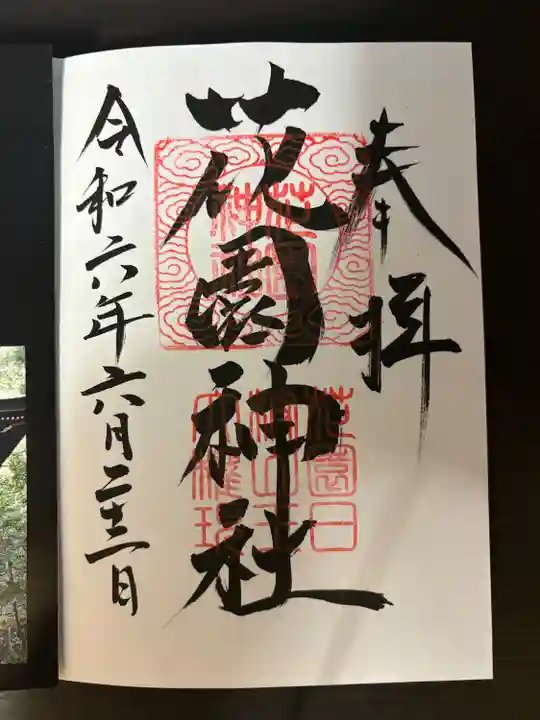 奉拝
花園神社
令和六年六月二十三日
花園神社
花園日枝山王大権現